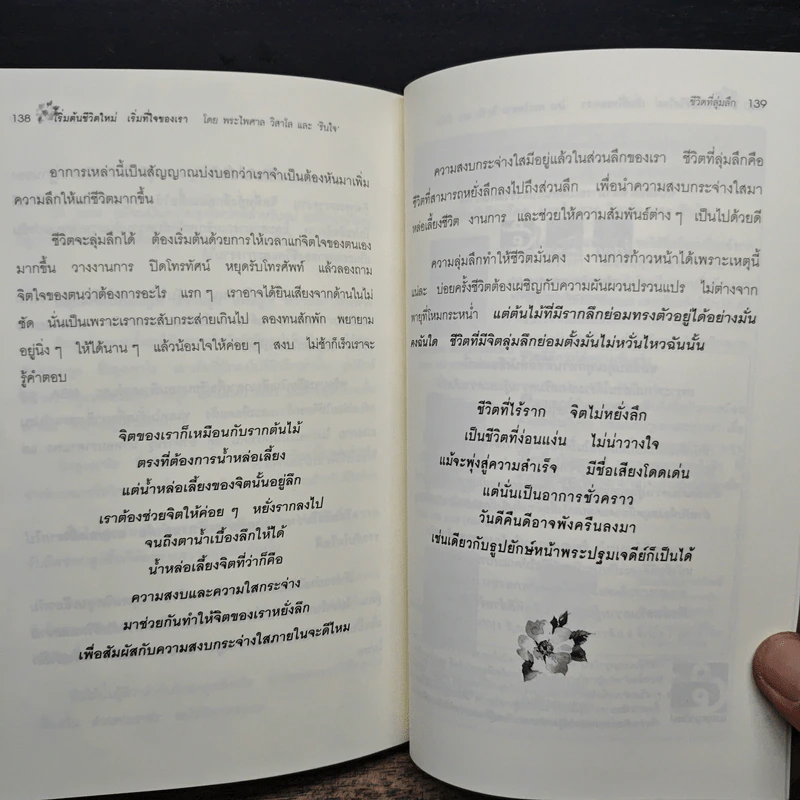 138 เริ่มต้นชีวิตใหม่ เริ่มที่ใจของเรา โดย พระไพศาล วิสาโล และ 'รินใจ'
อาการเหล่านี้เป็นสัญญาณบ่งบอกว่าเราจำเป็นต้องหันมาเพิ่ม
ความลึกให้แก่ชีวิตมากขึ้น
ชีวิตจะลุ่มลึกได้ ต้องเริ่มต้นด้วยการให้เวลาแก่จิตใจของตนเอง
มากขึ้น วางงานการ ปิดโทรทัศน์ หยุดรับโทรศัพท์ แล้วลองถาม
จิตใจของตนว่าต้องการอะไร แรก ๆ เราอาจได้ยินเสียงจากด้านในไม่
ชัด นั่นเป็นเพราะเรากระสับกระส่ายเกินไป ลองทนสักพัก พยายาม
อยู่นิ่ง ๆ ให้ได้นาน ๆ แล้วน้อมใจให้ค่อย ๆ สงบ ไม่ช้าก็เร็วเราจะ
รู้คำตอบ
จิตของเราก็เหมือนกับรากต้นไม้
ตรงที่ต้องการน้ำหล่อเลี้ยง
แต่น้ำหล่อเลี้ยงของจิตนั้นอยู่ลึก
เราต้องช่วยจิตให้ค่อย ๆ หยั่งรากลงไป
จนถึงตาน้ำเบื้องลึกให้ได้
น้ำหล่อเลี้ยงจิตที่ว่าก็คือ
ความสงบและความใสกระจ่าง
มาช่วยกันทำให้จิตของเราหยั่งลึก
เพื่อสัมผัสกับความสงบกระจ่างใสภายในจะดีไหม
ชีวิตที่ลุ่มลึก 139
ความสงบกระจ่างใสมีอยู่แล้วในส่วนลึกของเรา ชีวิตที่ลุ่มลึกคือ
ชีวิตที่สามารถหยั่งลึกลงไปถึงส่วนลึก เพื่อนำความสงบกระจ่างใสมา
หล่อเลี้ยงชีวิต งานการ และช่วยให้ความสัมพันธ์ต่าง ๆ เป็นไปด้วยดี
ความลุ่มลึกทำให้ชีวิตมั่นคง งานการก้าวหน้าได้เพราะเหตุนี้
แน่ละ บ่อยครั้งชีวิตต้องเผชิญกับความผันผวนปรวนแปร ไม่ต่างจาก
พายุที่โหมกระหน่ำ แต่ต้นไม้ที่มีรากลึกย่อมทรงตัวอยู่ได้อย่างมั่น
คงฉันใด ชีวิตที่มีจิตลุ่มลึกย่อมตั้งมั่นไม่หวั่นไหวฉันนั้น
ชีวิตที่ไร้ราก จิตไม่หยั่งลึก
เป็นชีวิตที่ง่อนแง่น ไม่น่าวางใจ
แม้จะพุ่งสู่ความสำเร็จ มีชื่อเสียงโดดเด่น
แต่นั่นเป็นอาการชั่วคราว
วันดีคืนดีอาจพังครืนลงมา
เช่นเดียวกับธูปยักษ์หน้าพระปฐมเจดีย์ก็เป็นได้